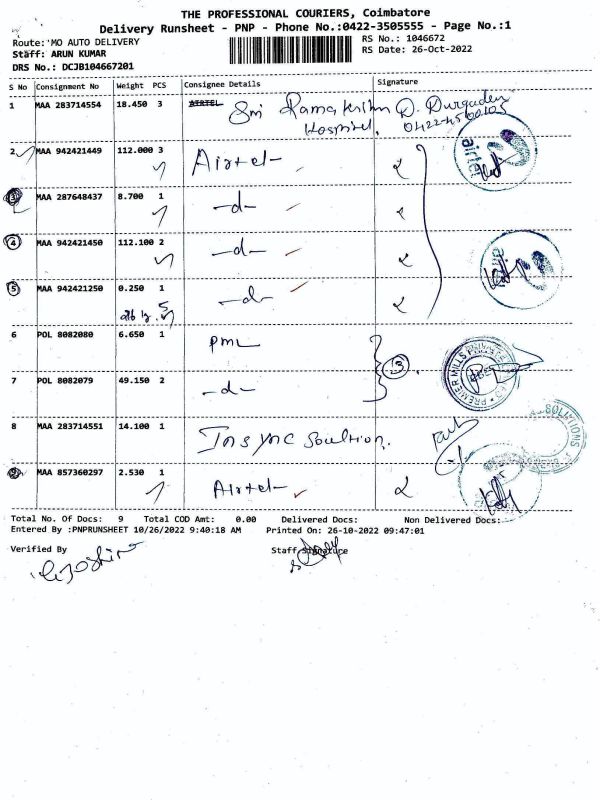 THE PROFESSIONAL COURIERS, Coimbatore
Delivery Runsheet - PNP - Phone No.:0422-3505555 - Page No.:1
Route: MO AUTO DELIVERY RS No.: 1046672
Staff: ARUN KUMAR RS Date: 26-Oct-2022
DRS No.: DCJB104667201
S No Consignment No Weight PCS Consignee Details Signature
1 MAA 283714554 18.450 3 AIRTEL Sri Ramakrishna D.
Hospital.
2 MAA 942421449 112.000 3 Airtel
airtel
3 MAA 287648437 8.700 1 -d-
4 MAA 942421450 112.100 2 -d-
5 MAA 942421250 0.250 1 -d-
5
6 POL 8082080 6.650 1 PML
3
PREMIER MILLS PRIVATE
7 POL 8082079 49.150 2 -d-
8 MAA 283714551 14.100 1 Insync Soultion.
SOLUTIONS
9 MAA 857360297 2.530 1 Airtel
Total No. Of Docs: 9 Total COD Amt: 0.00 Delivered Docs: Non Delivered Docs:
Entered By :PNPRUNSHEET 10/26/2022 9:40:18 AM Printed On: 26-10-2022 09:47:01
Verified By Staff Signature